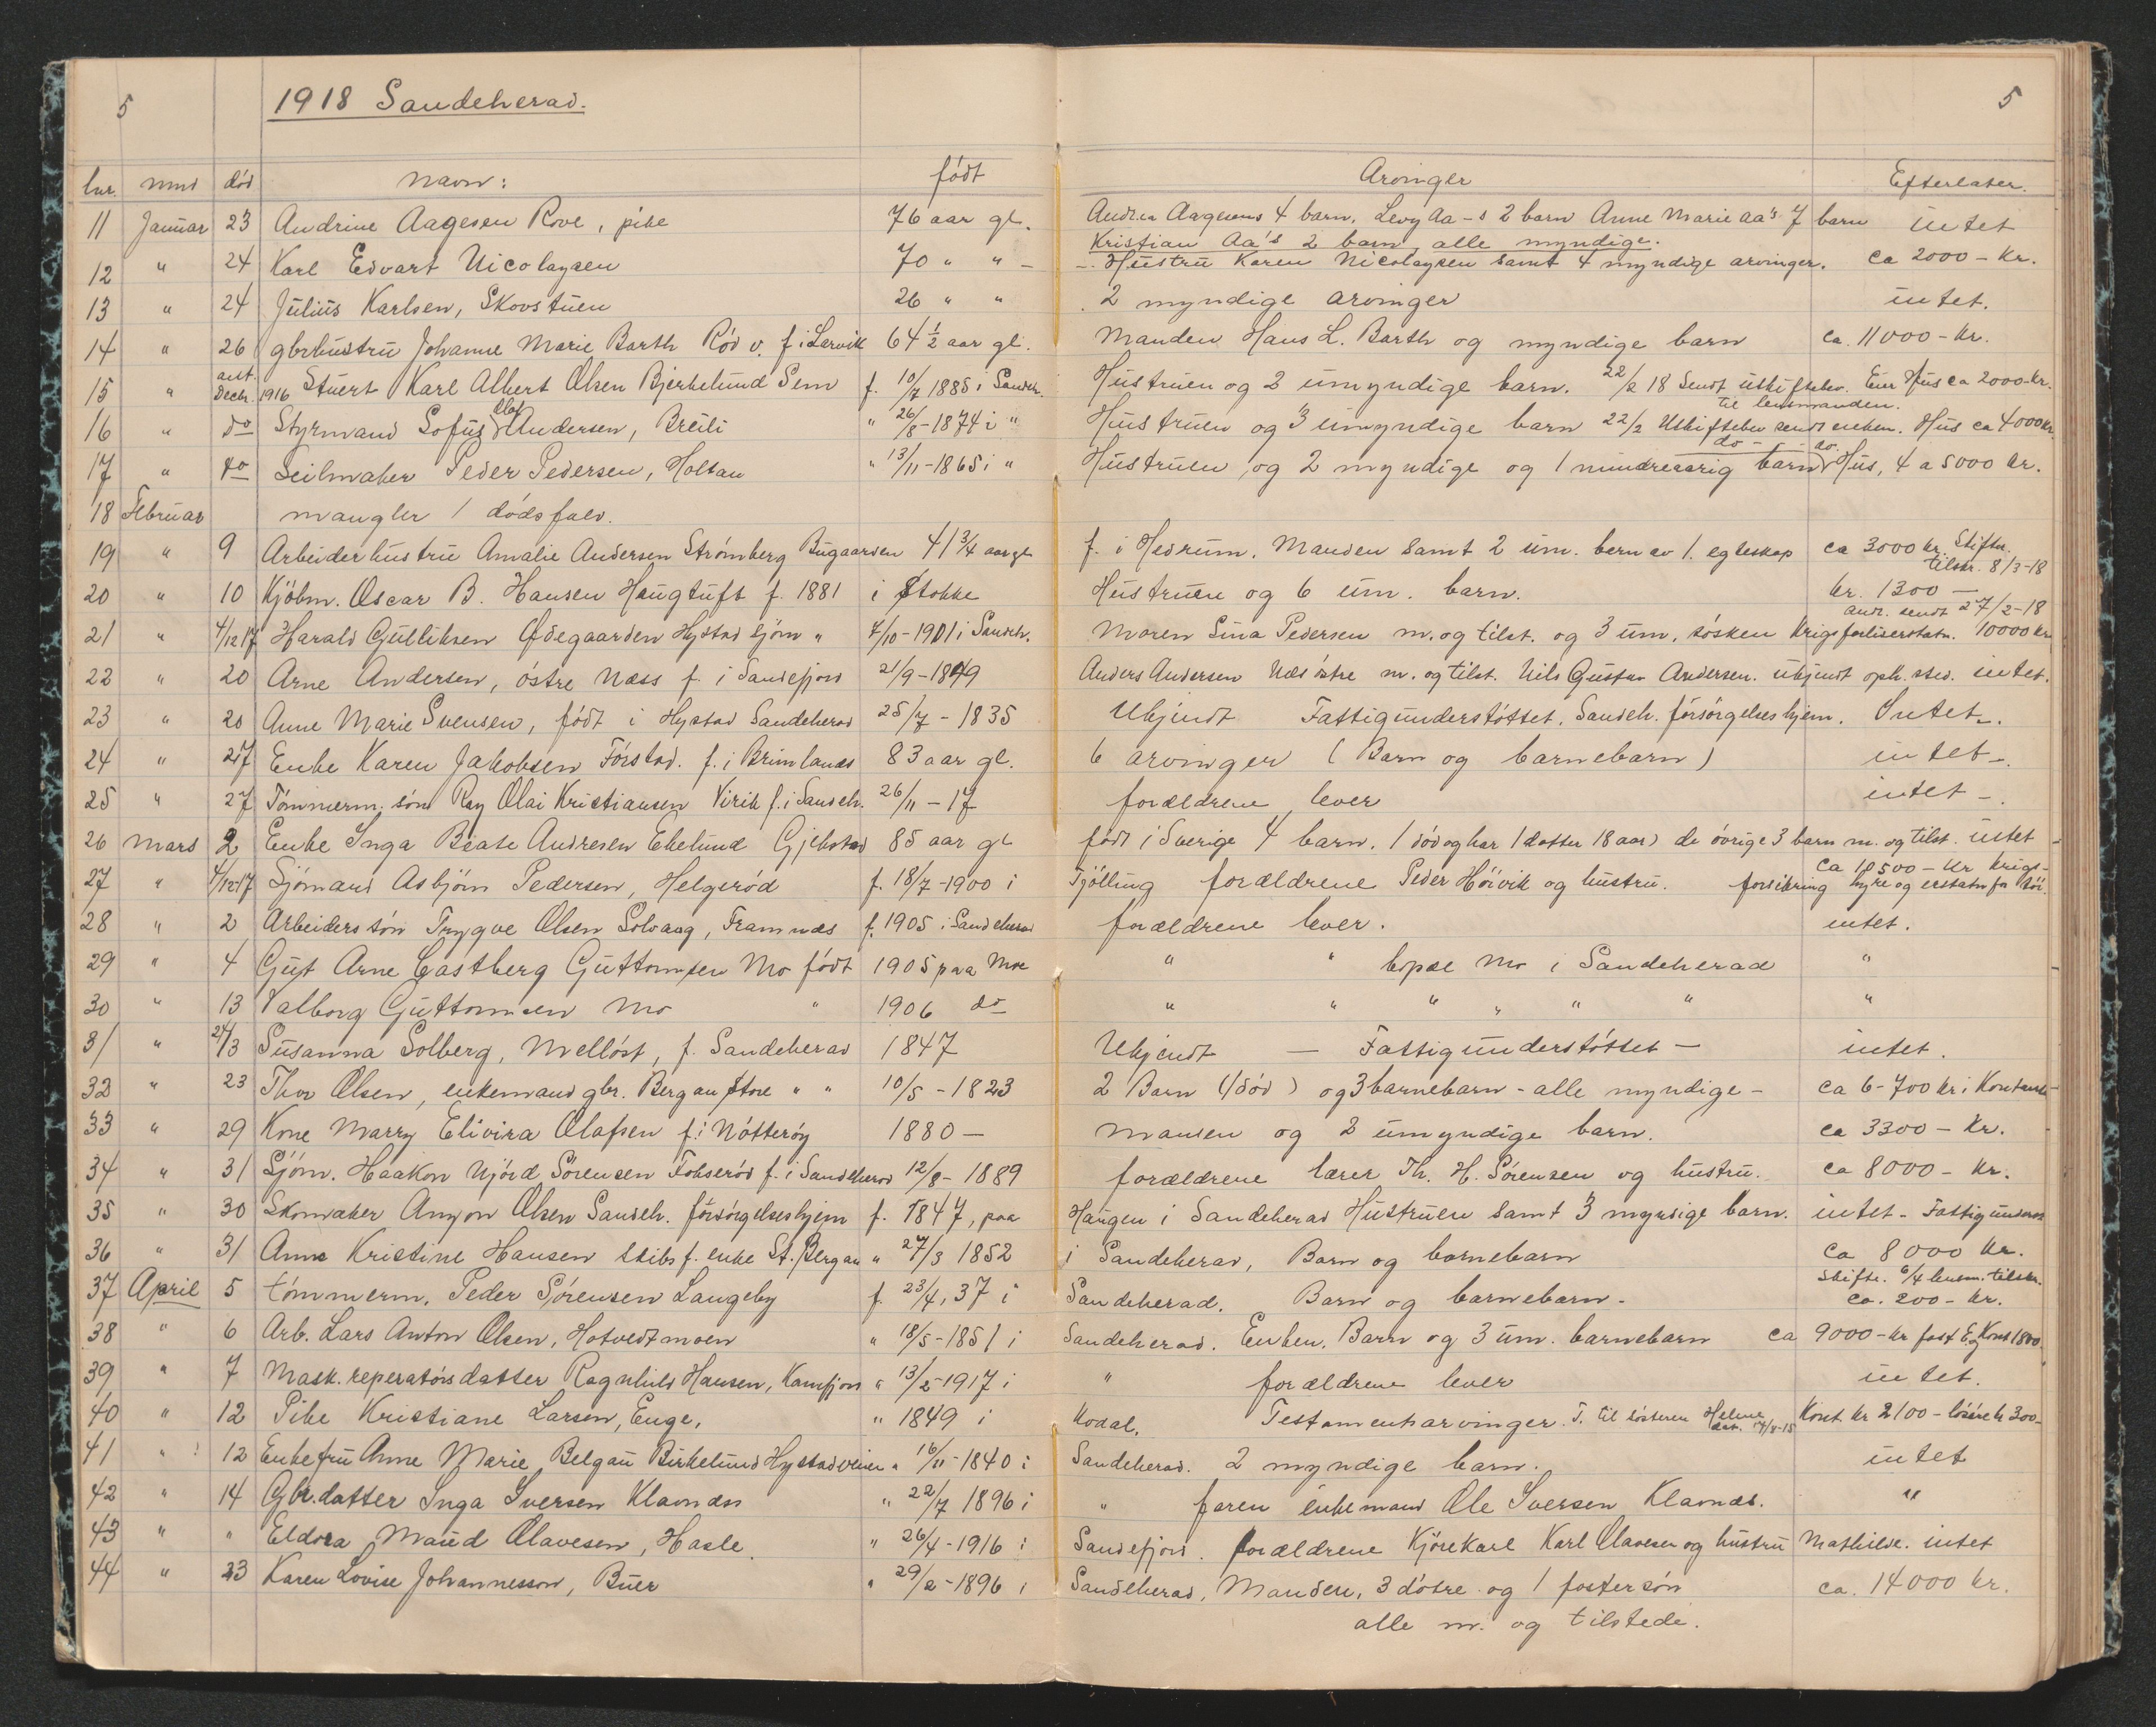 5
1918 Sandeherad.
5
lnr. mnd død Navn: født Arvinger Efterlater.
11 Januar 23 Andrine Aagesen Rove, pike 76 aar gl. Andrea Aagesens 4 barn, Levy Aa-s 2 barn Anne Marie Aa's 7 barn intet
Kristian Aa's 2 barn, alle myndige.
12 " 24 Karl Edvart Nicolaysen 70 " " - - Hustru Karen Nicolaysen samt 4 myndige arvinger. ca 2000 - Kr.
13 " 24 Julius Karlsen, Skovstuen 26 " " 2 myndige arvinger intet.
14 " 26 gbrhustru Johanne Marie Barth Rød v. f i Larvik 64 1/2 aar gl. Manden Hans L. Barth og myndige barn ca. 11000 - Kr.
15 " ant. Decbr. 1916 Stuert Karl Albert Olsen Bjerkelund Sem f. 10/7 1885 i Sandeh. Hustruen og 2 umyndige barn. 22/2 18 Sendt utskiftsbev. Eier Hus ca 2000 Kr.
til lensmanden.
16 " do Styrmand Sofus Olaf Andersen, Breili " 26/8-1874 i " Hustruen og 3 umyndige barn 22/2 Uskiftebev sendt enken. Hus ca 4000 Kr.
do - - - do.
17 " do Seilmaker Peder Pedersen, Holtan " 13/11-1865 i " Hustruen, og 2 myndige og 1 mindreaarig barn Hus, 4 a 5000 kr.
18 Februar mangler 1 dødsfald.
19 " 9 Arbeiderhustru Amalie Andersen Strømberg Bugaarden 41 3/4 aar gl f. i Hedrum. Manden samt 2 um. barn av 1. egteskap ca 3000 kr. Skiftn.
tilskr. 8/3-18
20 " 10 Kjøbm. Oscar B. Hansen Haugtuft f. 1881 i Stokke Hustruen og 6 um. barn. kr. 1300 -
andr. sendt 27/2-18
21 " 4/12 17 Harald Gulliksen Ødegaarden Hystad sjøm " 7/10-1901 i Sandeh. Maren Lina Pedersen m. og tilst. og 3 um. søsken Krigsforliserstatn. 10000 kr
22 " 20 Arne Andersen, østre Næss f. i Sandefjord 21/9-1849 Anders Andersen Næs østre m. og tilst. Nils Gustav Andersen. ukjendt oph. sted. intet.
23 " 20 Anne Marie Svensen, født i Hystad Sandeherad 25/7-1835 Ukjendt Fattigunderstøttet. Sandeh. forsørgelseshjem. Intet -.
24 " 27 Enke Karen Jakobsen Førstad. f. i Brunlanes 83 aar gl. 6 arvinger (Barn og barnebarn) intet -.
25 " 27 Tømmerm. søn Roy Olai Kristiansen Virik f. i Sandeh. 26/11 - 17 forældrene lever intet -.
26 Mars 2 Enke Inga Beate Andresen Ekelund Gjekstad 85 aar gl født i Sverige 4 barn. 1 død og har 1 datter 18 aar) de øvrige 3 barn m. og tilst. intet
27 " 4/12-17 Sjømand Asbjørn Pedersen, Helgerød f. 18/7-1900 i Tjølling forældrene Peder Høivik og hustru. ca 10500 - Kr krigs-
forsikring hyre og erstatn for tøi.
28 " 2 Arbeiders søn Trygve Olsen Solvang, Framnæs f. 1905 i Sandeherad forældrene lever. intet.
29 " 4 Gut Arne Castberg Guttormsen Mo født 1905 paa Moe " " bopæl Mo i Sandeherad "
30 " 13 Valborg Guttormsen Mo " 1906 do " " " " " " "
31 " 24/3 Susanna Solberg, Melløst, f. Sandeherad 1847 Ukjendt - Fattigunderstøttet - intet.
32 " 23 Thor Olsen, enkemand gbr. Bergan Store " " 10/5 - 1823 2 Barn (1 død) og 3 barnebarn - alle myndige - ca 6-700 kr i Kontanter
33 " 29 Kone Marry Elivira Olafsen f. i Nøtterøy 1880 - Manden og 2 umyndige barn. ca 3300 - Kr.
34 " 31 Sjøm. Haakon Njörd Sørensen Fokserød f. i Sandeherad 12/8-1889 forældrene lærer Th. H. Sørensen og hustru. ca 8000 - Kr.
35 " 30 Skomaker Anyon Olsen Sandeh. forsørgelseshjem f. 1847, paa Haugen i Sandeherad Hustruen samt 3 myndige barn. intet - Fattigunderst
36 " 31 Anne Kristine Hansen skibsf. enke St. Bergan " 27/3 1852 i Sandeherad, Barn og barnebarn ca 8000 Kr.
Skiftr. 6/4 lensm. tilskr.
37 April 5 tømmerm. Peder Sørensen Langeby f. 23/4, 37 i Sandeherad. Barn og barnebarn - ca. 200 - kr.
38 " 6 Arb. Lars Anton Olsen, Hotvedtmoen " 18/5-1851 i Sandeherad. Enken, Barn og 3 um. barnebarn ca 9000 - kr fast E. og Kont 1800.
39 " 7 Mask. reperatørs datter Ragnhild Hansen, Kamfjord " 13/2-1917 i " forældrene lever intet.
40 " 12 Pike Kristiane Larsen, Enge, " 1849 i Kodal, Testamentarvinger. T. til søsteren Helene dat. 17/8-15 Kont. kr 2100 - løsøre kr 300 -
41 " 12 Enkefru Anne Marie Belgau Birkelund Hystadveien " 16/11-1840 i Sandeherad. 2 myndige barn. intet
42 " 14 Gbr. datter Inga Iversen Klavnæs " 22/7 1896 i " faren enkemand Ole Iversen Klavnæs. "
43 " " Eldora Maud Olavesen, Hasle. " 26/4-1916 i Sandefjord. forældrene Kjørekarl Karl Olavesen og hustru Mathilde. intet
44 " 23 Karen Lovise Johannesson, Buer " 29/2-1896 i Sandeherad, Manden, 3 døtre og 1 fostersøn ca. 14000 kr.
alle m. og tilstede.